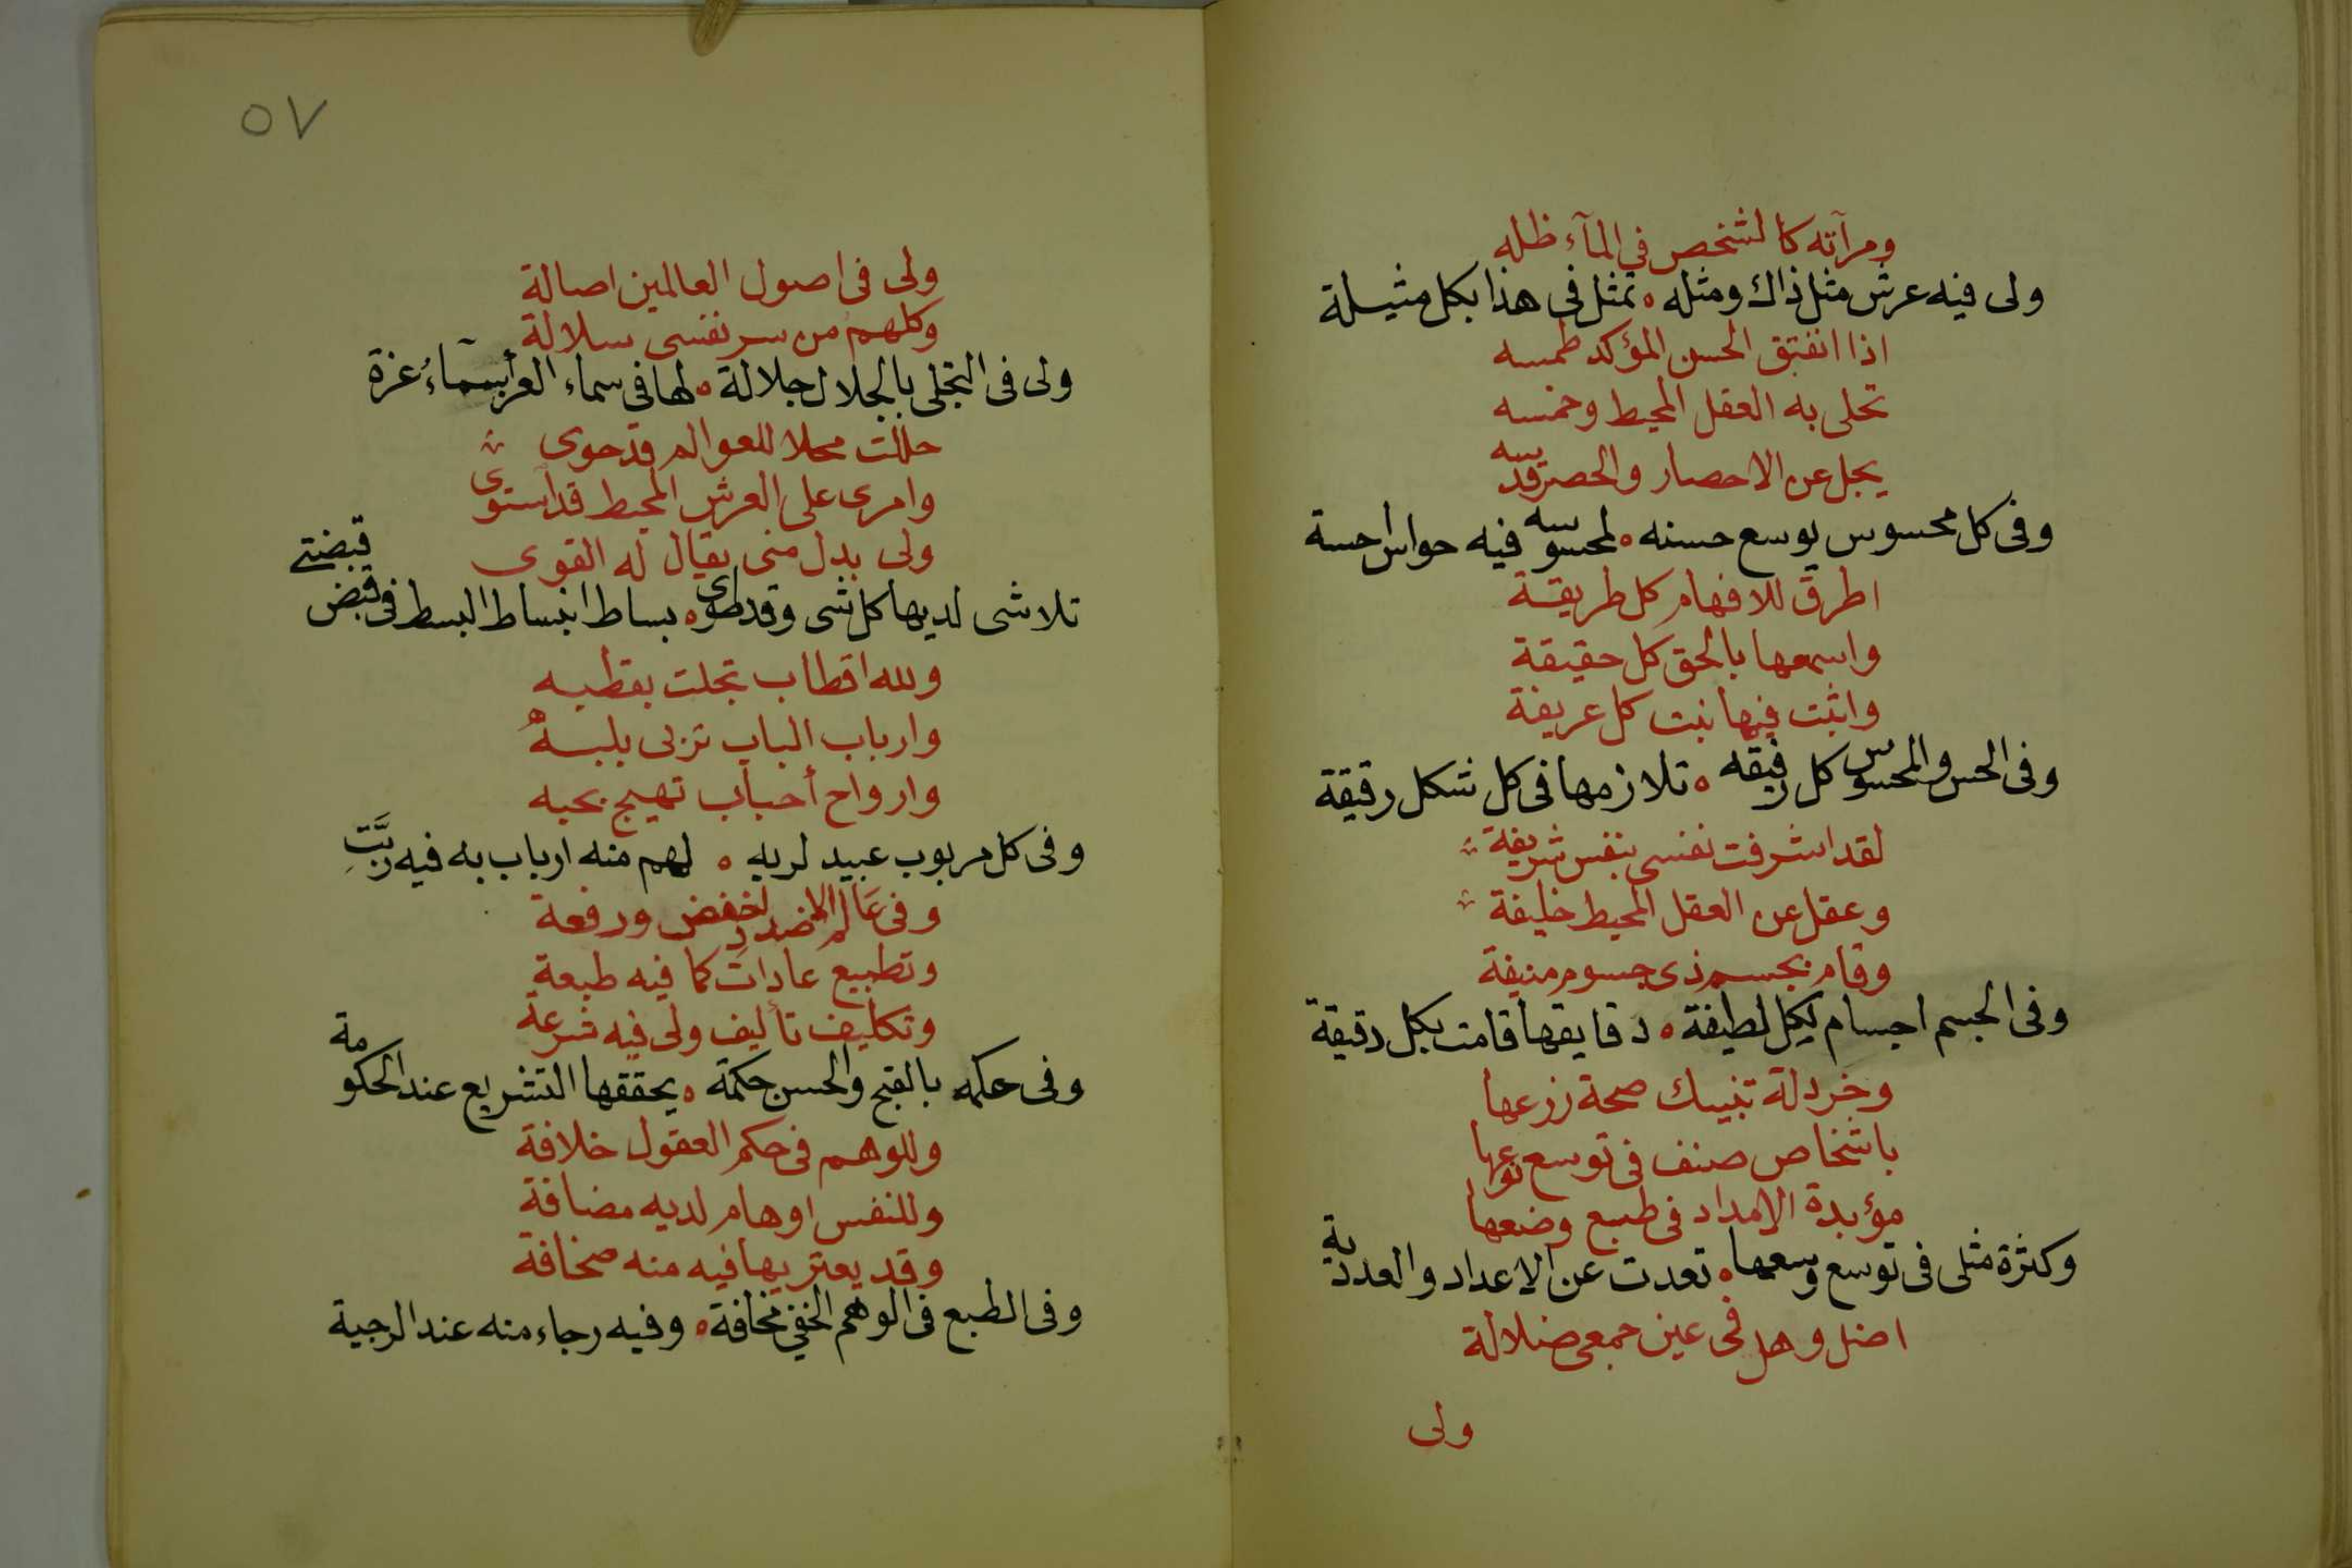 ومرآته كالشخص في المآء ظله
ولى فيه عرش مثل ذاك ومثله ه تمثل فى هذا بكل مثيلة
اذا انفتق الحسن المؤكد طمسه
تحلى به العقل المحيط وخمسه
يجل عن الاحصار والحصر قدسه
وفى كل محسوس يوسع حسنه ه لمحسوسه فيه حواس احسة
اطرق للافهام كل طريقة
واسمعها بالحق كل حقيقة
واثبت فيها نبت كل عريفة
وفى الحس والمحسوس كل رفيقه ه تلازمها فى كل شكل رقيقة
لقد اشرفت نفسى بنفس شريفة
وعقل عن العقل المحيط خليفة
وقام بجسم ذى جسوم منيفة
وفى الجسم اجسام لكل لطيفة ه دقايقها قامت بكل دقيقة
وخردلة تنبيك صحة زرعها
باشخاص صنف فى توسع نوعها
مؤبدة الامداد فى طبع وضعها
وكثرة مثلى فى توسع وسعها ه تعدت عن الاعداد والعددية
اضل وهل فى عين جمعى ضلالة
ولى
٥٧
ولى فى اصول العالمين اصالة
وكلهم من سر نفسى سلالة
ولى فى التجلى بالجلال جلالة ه لها فى سماء العز أسمآءُ عزة
حللت محلا للعوالم قد حوى
وامرى على العرش المحيط قد استوى
ولى بدل منى يقال له القوى
تلاشى لديها كل شى وقد طوى ه بساط انبساط البسط فى قبض قبضتے
ولله اقطاب تجلت بقطبه
وارباب الباب تربى بلبه
وارواح أحباب تهيج بحبه
وفى كل مربوب عبيد لربه ه لهم منه ارباب به فيه ربَّتِ
وفى عَالم الاضداد خفض ورفعة
وتطبيع عادات كما فيه طبعة
وتكليف تأليف ولى فيه شرعة
وفى حكمه بالقبح والحسن حكمة ه يحققها التشريع عند الحكومة
وللوهم فى حكم العقول خلافة
وللنفس اوهام لديه مضافة
وقد يعتريها فيه منه صخافة
وفى الطبع فى الوهم الخفي مخافة ه وفيه رجاء منه عند الرجية